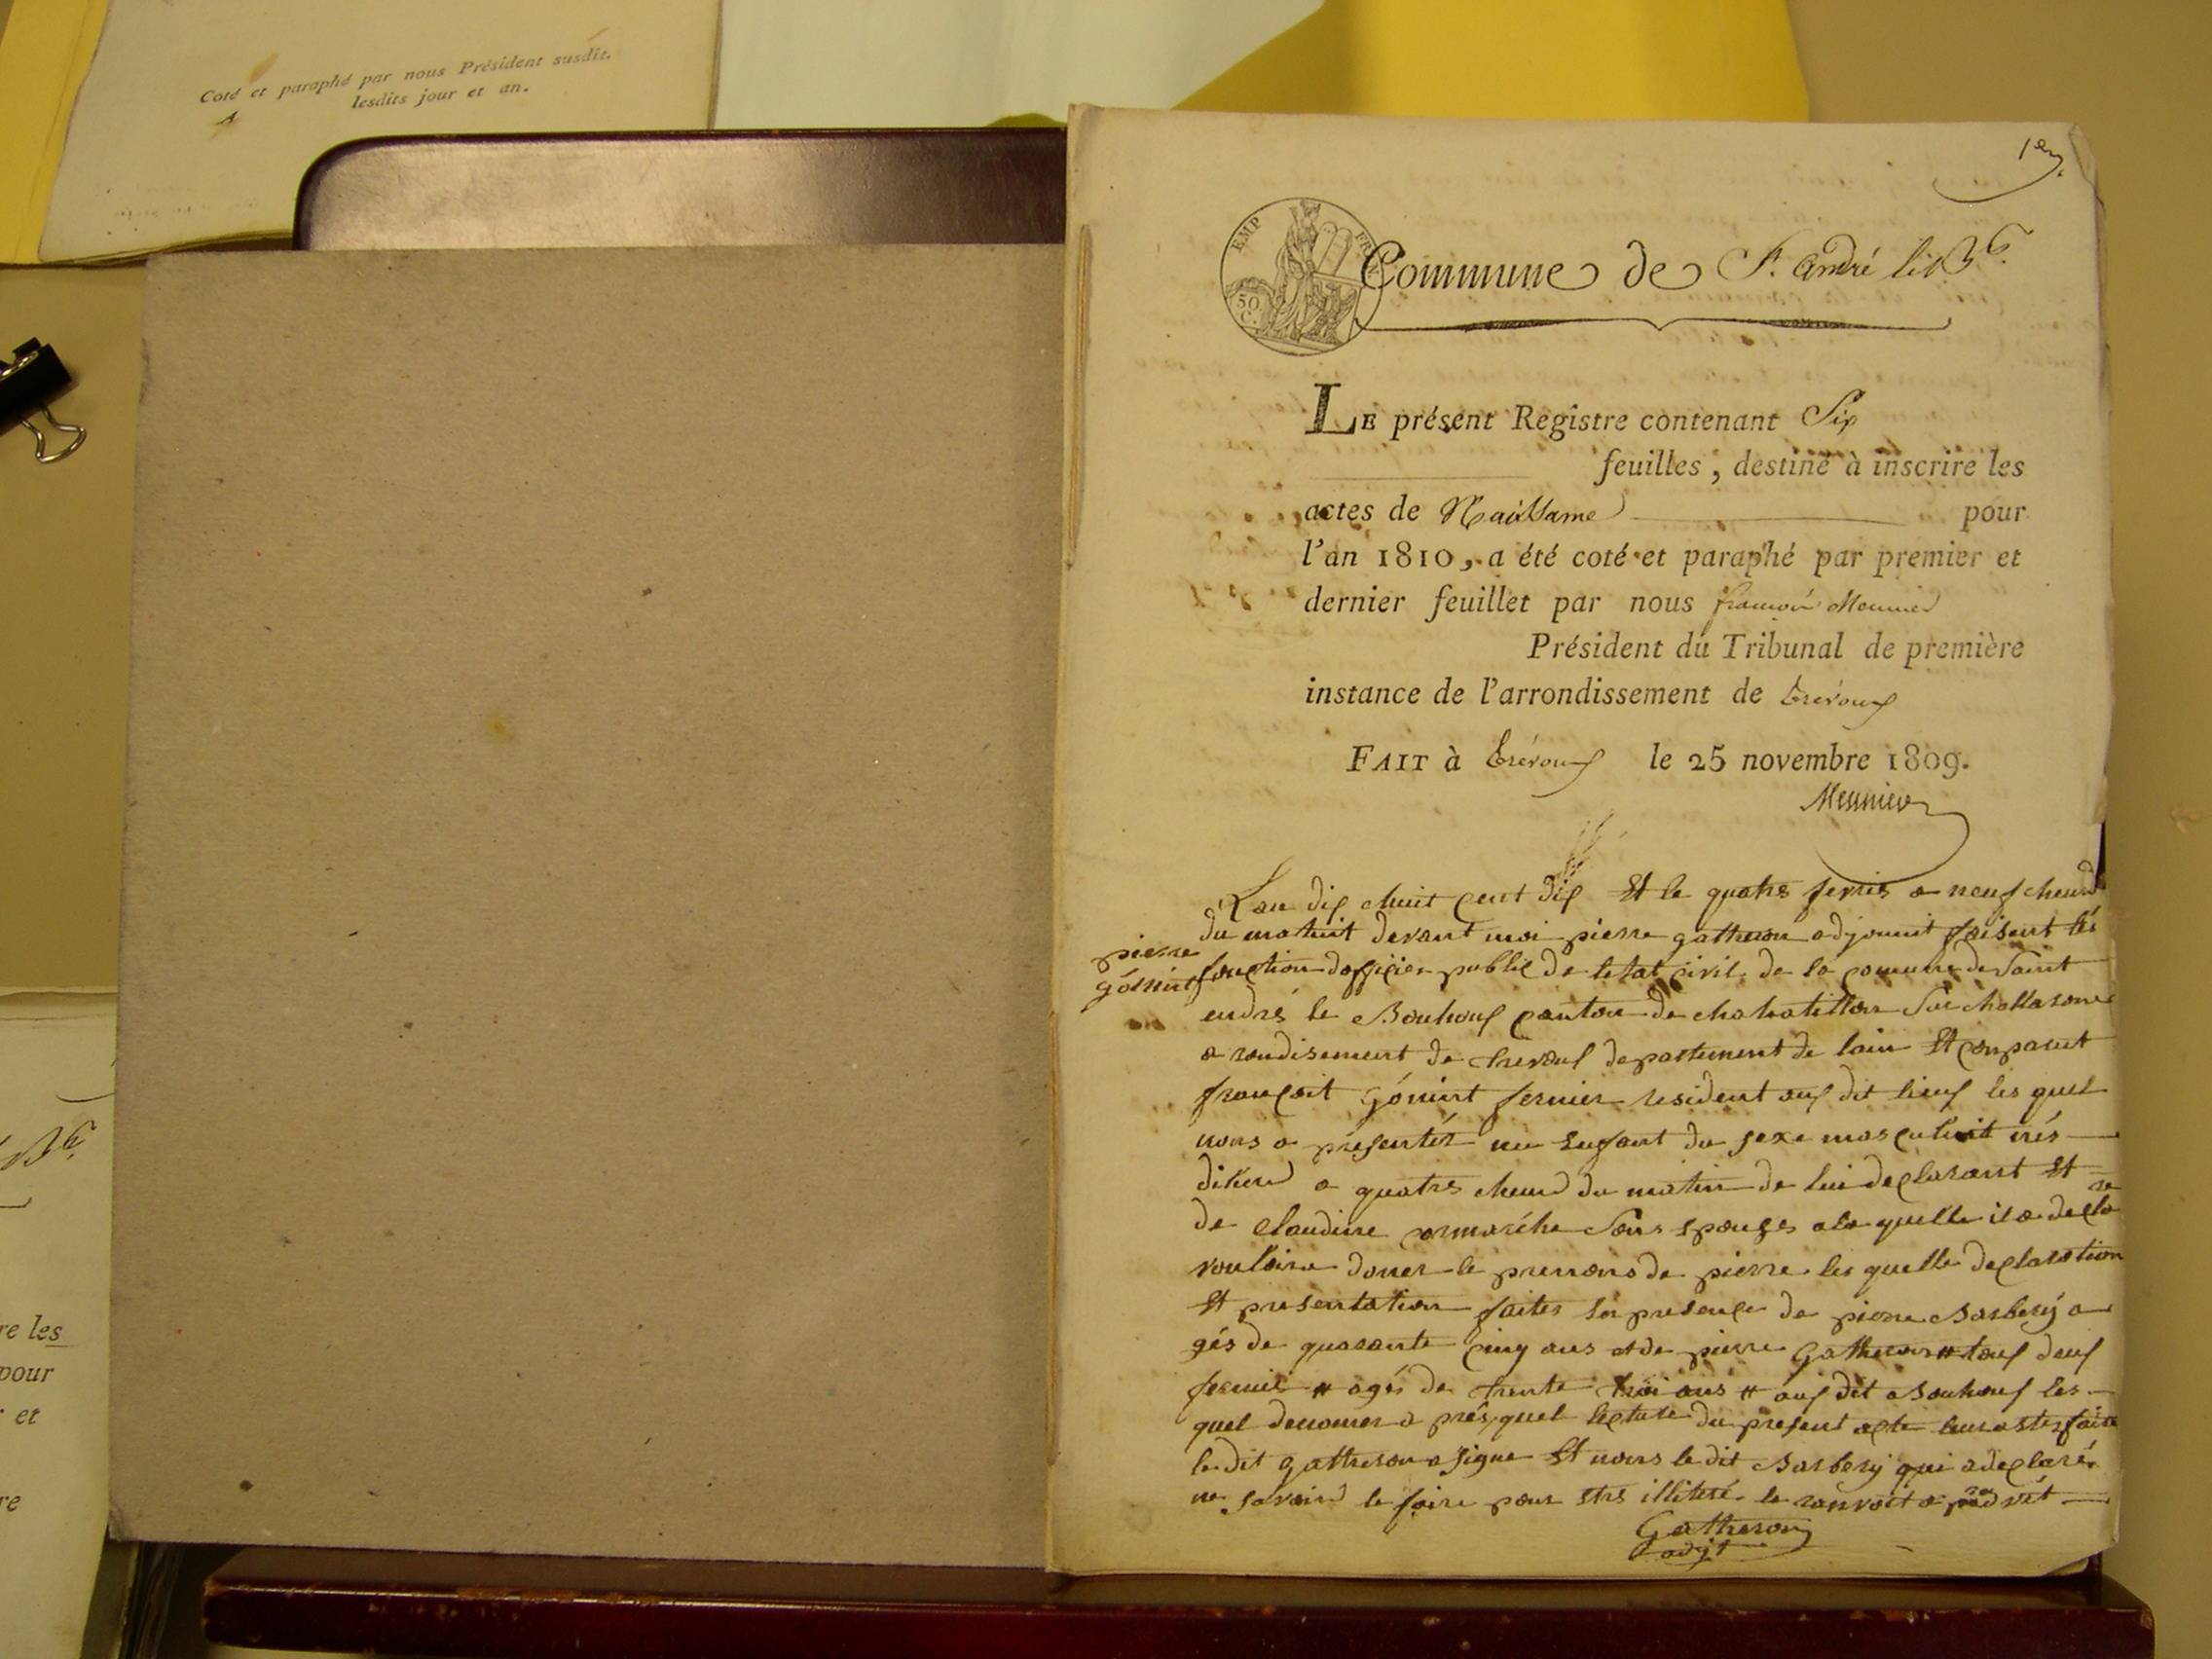 Coté et paraphé par nous Président susdit.
lesdits jour et an.
1er
EMP FRAN
50 C.
Commune de St. André le Bx.
LE présent Registre contenant Six
feuilles, destiné à inscrire les
actes de Naissance pour
l'an 1810, a été coté et paraphé par premier et
dernier feuillet par nous françois Meunier
Président du Tribunal de première
instance de l'arrondissement de Trévoux
FAIT à Trévoux le 25 novembre 1809.
Meunier
Lan dix chuit cent dix Et le quatre fevrie a neuf cheurd
du matint devant moi pierre gatheron adjouint faisent les
pierre
gónint
fonction dofficier public de letat civil de la comune de Saint
endré le Bouhouf canton de chahatillon sur challarone
a rondisement de trevouf departement de lain Et conparut
françoit gónint fermier resident auf dit lieuf les quel
nous a présentér un Enfant du sexe masculint nés
dihier a quatre cheurd du matin de lui declarant Et
de claudine sons epouses a la quelle il a decla
re
vouloire doner le prenons de pierre les quelle declaration
Et presentation faites En presence de pierre Barbery a
gés de quarante cinq ans et de pierre Gatheron # touf deuf
fermié # agés de trente troi ans # auf dit Bouhouf les
quel denomer a prés quel lecture du present acte leur a ster faite
le dit gatheron a signe Et nous le dit Barbery qui a declaré
ne savoird le faire pour etre illiteré le ranvoit a
Gatheron
adjt
Bx.
re les
pour
et
re